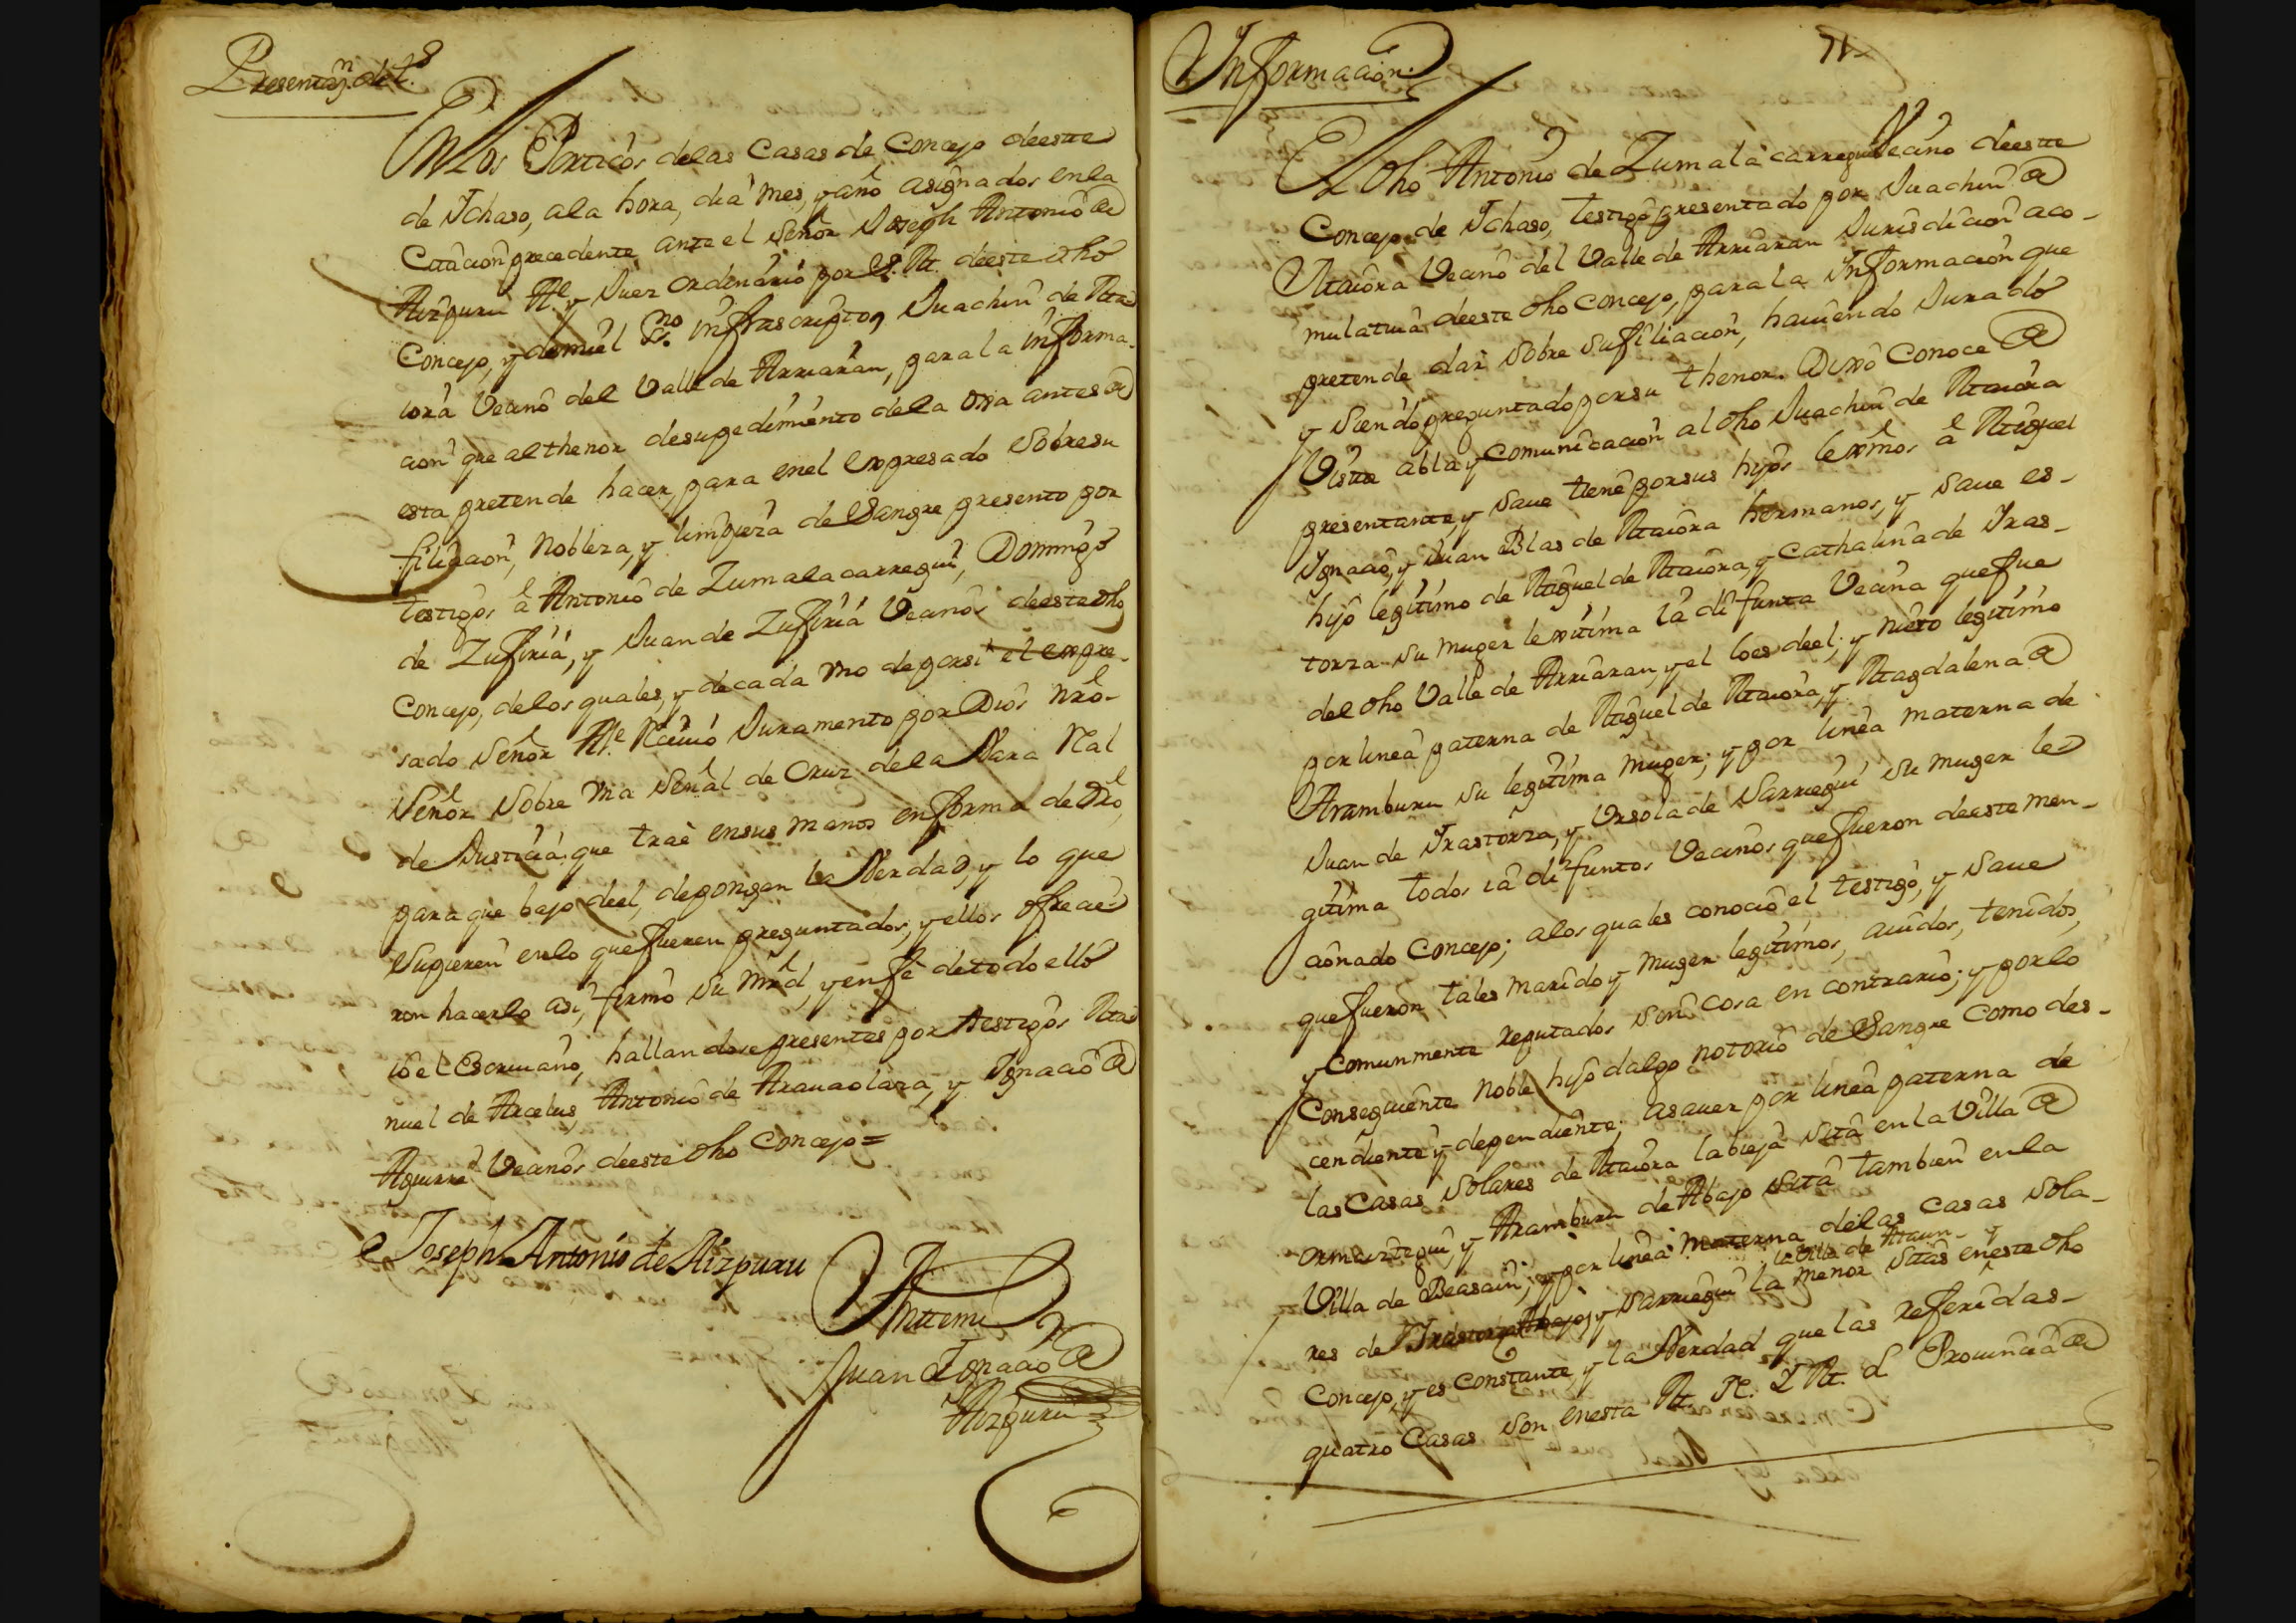 Presentazn. de ts
En Los Porticos delas Casas de Concejo deeste
de Ichaso, ala hora, dia mes, y año asignados enla
Citacion precedente ante el Señor Joseph Antonio de
Aizpuru Alle. y Juez ordinario por S. M. deeste dho
Concejo, y demi el Essno. infrascripto, Juachin de Maio
iora Vecino del Valle de Arriaran, para la informa-
cion que al thenor desupedimento dela ora antes de
esta pretende hacer, para enel Expresado Sobresu
filiacion, Nobleza, y limpieza de Sangre presento por
testigos â Antonio de Zumalacarregui, Domingo
de Zufiria, y Juan de Zufiria Vecinos deeste dho
Concejo, delos quales, y decada vno deporsi el expre-
sado Señor Alle. Recivio Juramento por Dios nro-
Señor Sobre vna Señal de Cruz dela Vara Real
de Justicia que trae ensus manos enforma de Dro,
para que bajo deel, depongan la Verdad, y lo que
Supieren enlo quefueren preguntados, y ellos ofrecie
ron hacerlo asi, firmo Su Mrd, y enfe detodo ello
io el Escriuano, hallandose presentes por testigos Ma
nuel de Arcelus, Antonio de Arauaolaza, y Ignacio de
Aguirre Vecinos deeste dho Concejo=
Joseph Antonio de Aizpuru
Anttemi
Juan Ignacio de
Aizpuru
Informacion.
71
El dho Antonio de Zumalacarregui Vecino deeste
Concejo de Ichaso, testigo presentado por Juachin de
Maiora Vecino del Valle de Arriaran Jurisdicion aco-
mulatiua deeste dho Concejo, para la Informacion que
pretende dar Sobre Sufiliacion, hauiendo Jurado
y Siendo preguntado por su thenor. Dixo Conoce de
Vista abla y Comunicacion al dho Juachin de Maiora
presentante, y Saue tiene por sus hijos lexmos â Miguel
Ignacio, y Juan Blas de Maiora hermanos, y Saue es-
hijo legitimo de Miguel de Maiora, y Cathalina de Iras-
torza Su muger lexitima ia difunta Vecina quefue
del dho Valle de Arriaran, y el loes deel; y nieto legitimo
por linea paterna de Miguel de Maiora, y Magdalena de
Aramburu Su legitima Muger; y por linea materna de
Juan de Irastorza, y Ursola de Sarriegui Su muger le
gitima todos ia difuntos Vecinos quefueron deeste men-
cionado Concejo; alos quales conocio el testigo, y Saue
quefueron tales marido y Muger legitimos, auidos, tenidos,
y Comunmente reputados Sin Cosa en contrario; y porlo
Conseguiente Noble hijo dalgo notorio de Sangre Como des-
cendiente y dependiente, asauer por linea paterna de
las Casas Solares de Maiora labieja Sita en la Villa de
ormaiztegui, y Aramburu de Abajo Sita tambien en la
Villa de Beasain; y por linea Materna delas Casas Sola-
la Villa de Ataun. y
res de Irastorza Abajo, y Sarriegui la menor Sitas en este dho
Concejo, y es Constante, y la Verdad que las referidas-
quatro Casas Son enesta M. N. Y M. L Prouincia de